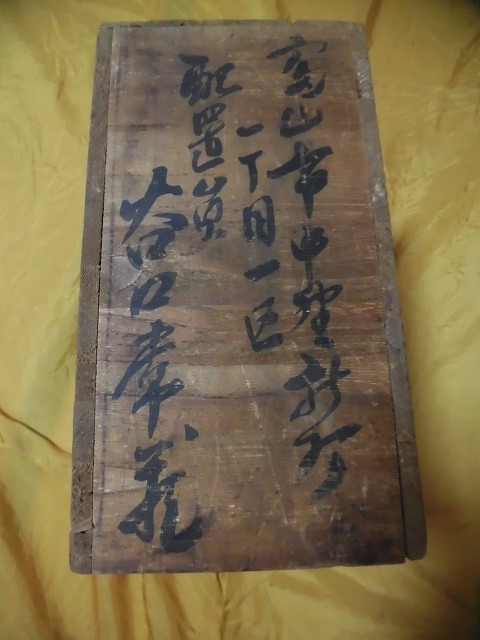 富山市中野新町
一丁目一区
配置員
谷口義